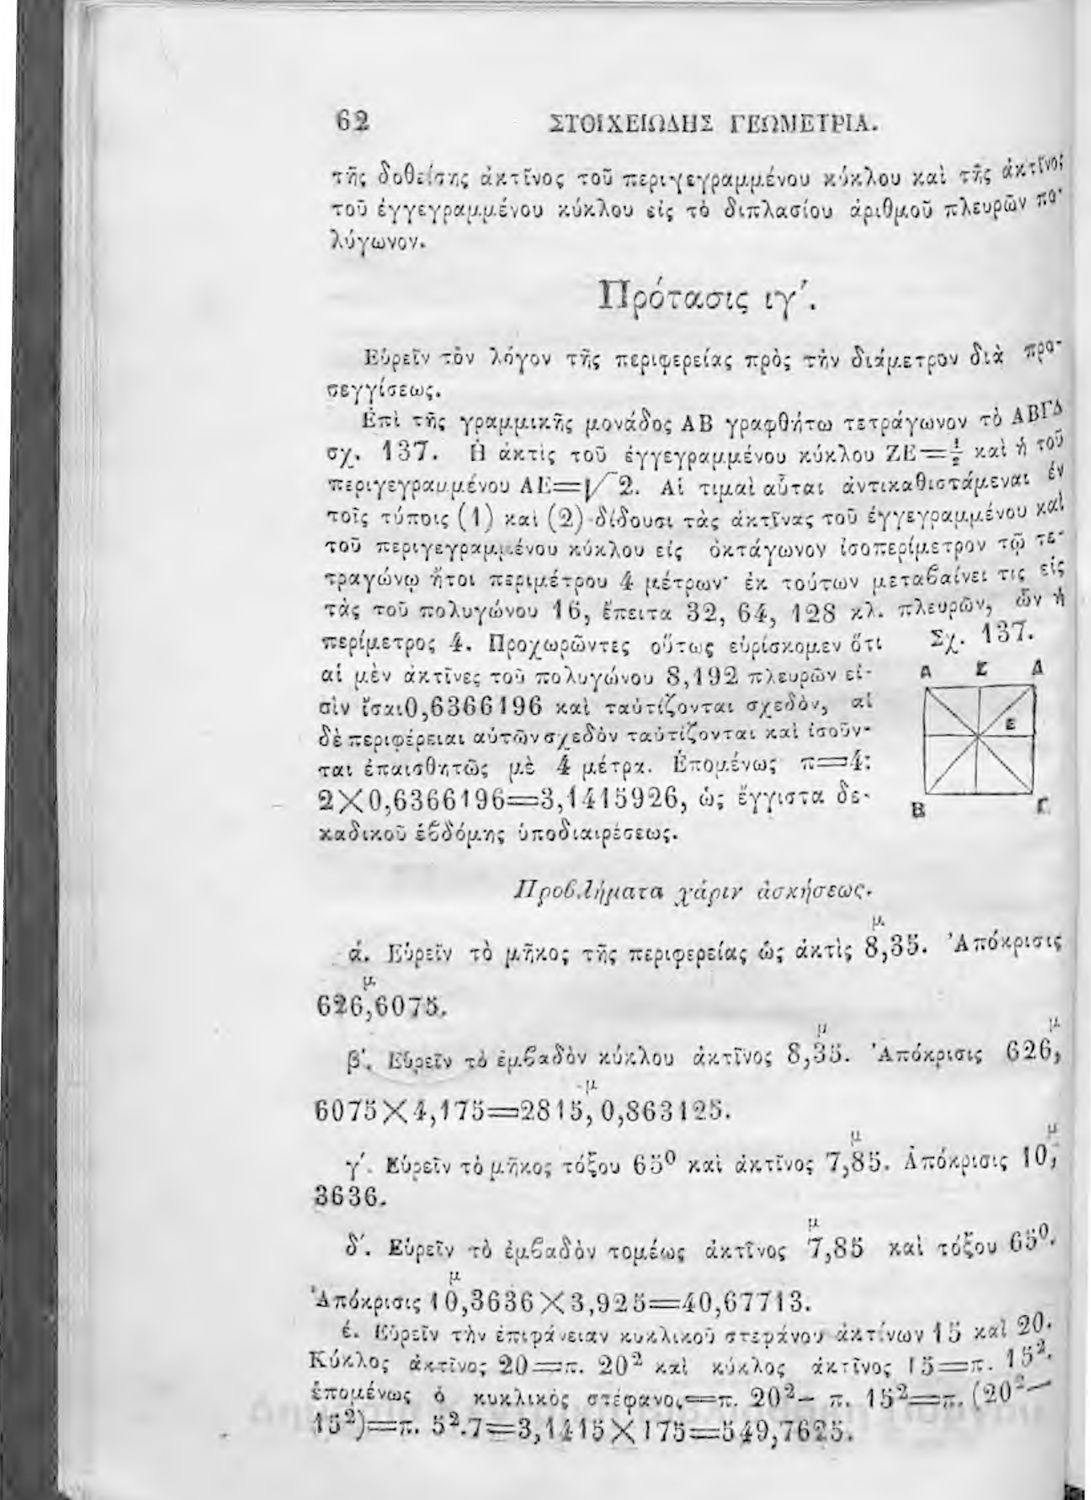 62 ΣΤΟΙΧΕΙΩΔΗΣ ΓΕΩΜΕΤΡΙΑ.
τῆς δοθείσης ἀκτῖνος τοῦ περιγεγραμμένου κύκλου καὶ τῆς ἀκτῖνος
τοῦ ἐγγεγραμμένου κύκλου εἰς τὸ διπλασίου ἀριθμοῦ πλευρῶν πο-
λύγωνον.
Πρότασις ιγ΄.
Εὑρεῖν τὸν λόγον τῆς περιφερείας πρὸς τὴν διάμετρον διὰ προ-
σεγγίσεως.
Ἐπὶ τῆς γραμμικῆς μονάδος ΑΒ γραφθήτω τετράγωνον τὸ ΑΒΓΔ
σχ. 137. Ἡ ἀκτὶς τοῦ ἐγγεγραμμένου κύκλου ΖΕ=½ καὶ ἡ τοῦ
περιγεγραμμένου ΑΕ=√2. Αἱ τιμαὶ αὗται ἀντικαθιστάμεναι ἐν
τοῖς τύποις (1) καὶ (2) δίδουσι τὰς ἀκτῖνας τοῦ ἐγγεγραμμένου καὶ
τοῦ περιγεγραμμένου κύκλου εἰς ὀκτάγωνον ἰσοπερίμετρον τῷ τε-
τραγώνῳ ἤτοι περιμέτρου 4 μέτρων· ἐκ τούτων μεταβαίνει τις εἰς
τὰς τοῦ πολυγώνου 16, ἔπειτα 32, 64, 128 κλ. πλευρῶν, ὧν ἡ
περίμετρος 4. Προχωρῶντες οὕτως εὑρίσκομεν ὅτι
αἱ μὲν ἀκτῖνες τοῦ πολυγώνου 8,192 πλευρῶν εἰ-
σὶν ἴσαι0,6366196 καὶ ταὐτίζονται σχεδὸν, αἱ
δὲ περιφέρειαι αὐτῶν σχεδὸν ταὐτίζονται καὶ ἰσοῦν-
ται ἐπαισθητῶς μὲ 4 μέτρα. Ἑπομένως π=4:
2Χ0,6366196=3,1415926, ὡς ἔγγιστα δε-
καδικοῦ ἑβδόμης ὑποδιαιρέσεως.
Σχ. 137.
Α Ζ Δ
Ε
Β Γ
Προβλήματα χάριν ἀσκήσεως.
μ
ά. Εὑρεῖν τὸ μῆκος τῆς περιφερείας ὡς ἀκτὶς 8,35. Ἀπόκρισις
μ
626,6075.
μ μ
β΄. Εὑρεῖν τὸ ἐμβαδὸν κύκλου ἀκτῖνος 8,35. Ἀπόκρισις 626,
μ
6075Χ4,175=2815, 0,863125.
μ μ
γ΄. Εὑρεῖν τὸ μῆκος τόξου 65⁰ καὶ ἀκτῖνος 7,85. Ἀπόκρισις 10,
3636.
μ
δ΄. Εὑρεῖν τὸ ἐμβαδὸν τομέως ἀκτῖνος 7,85 καὶ τόξου 65⁰.
μ
Ἀπόκρισις 10,3636Χ3,925=40,67713.
έ. Εὑρεῖν τὴν ἐπιφάνειαν κυκλικοῦ στεφάνου ἀκτίνων 15 καὶ 20.
Κύκλος ἀκτῖνος 20=π. 20² καὶ κύκλος ἀκτῖνος 15=π. 15².
ἑπομένως ὁ κυκλικὸς στέφανος=π. 20²— π. 15²=π. (20²—
15²)=π. 5².7=3,1415Χ175=549,7625.